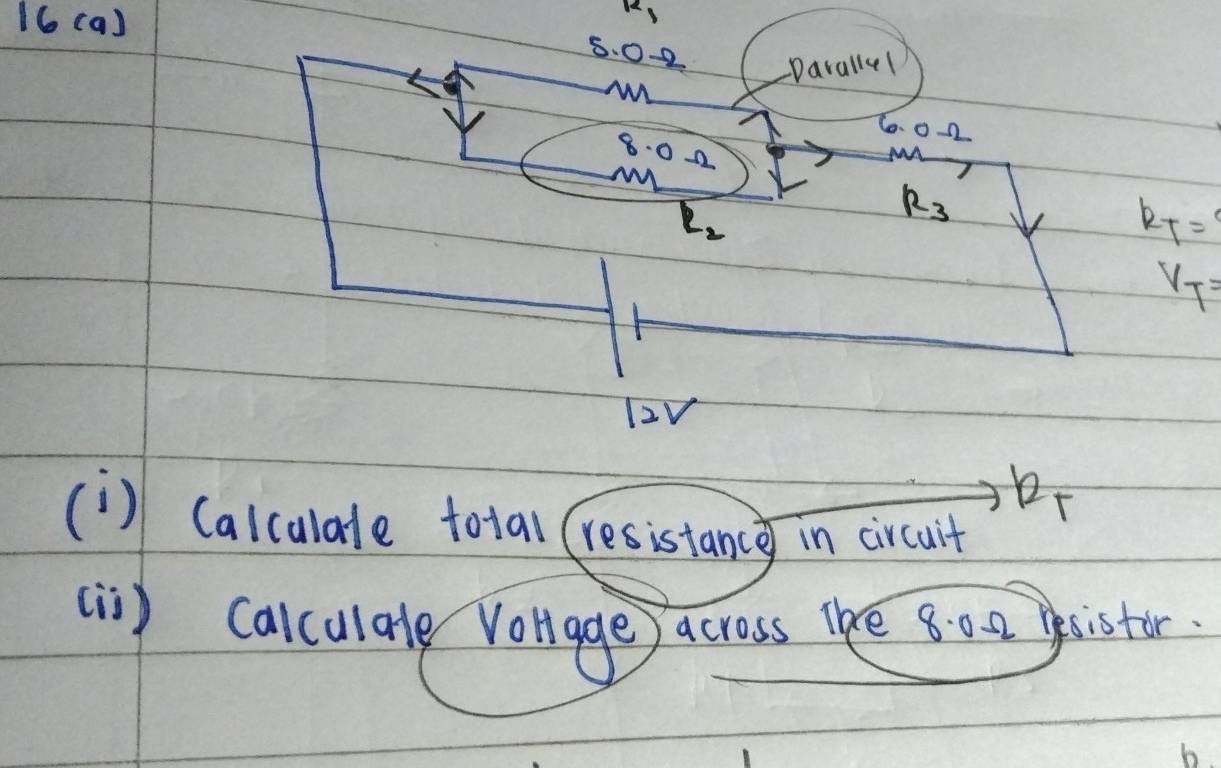 16 (a)
R1
5.0Ω
Parallel
8.0Ω
6.0Ω
R2
R3
RT =
VT =
12V
RT
(i) Calculate total resistance in circuit
(ii) Calculate Voltage across the 8.0Ω resistor.